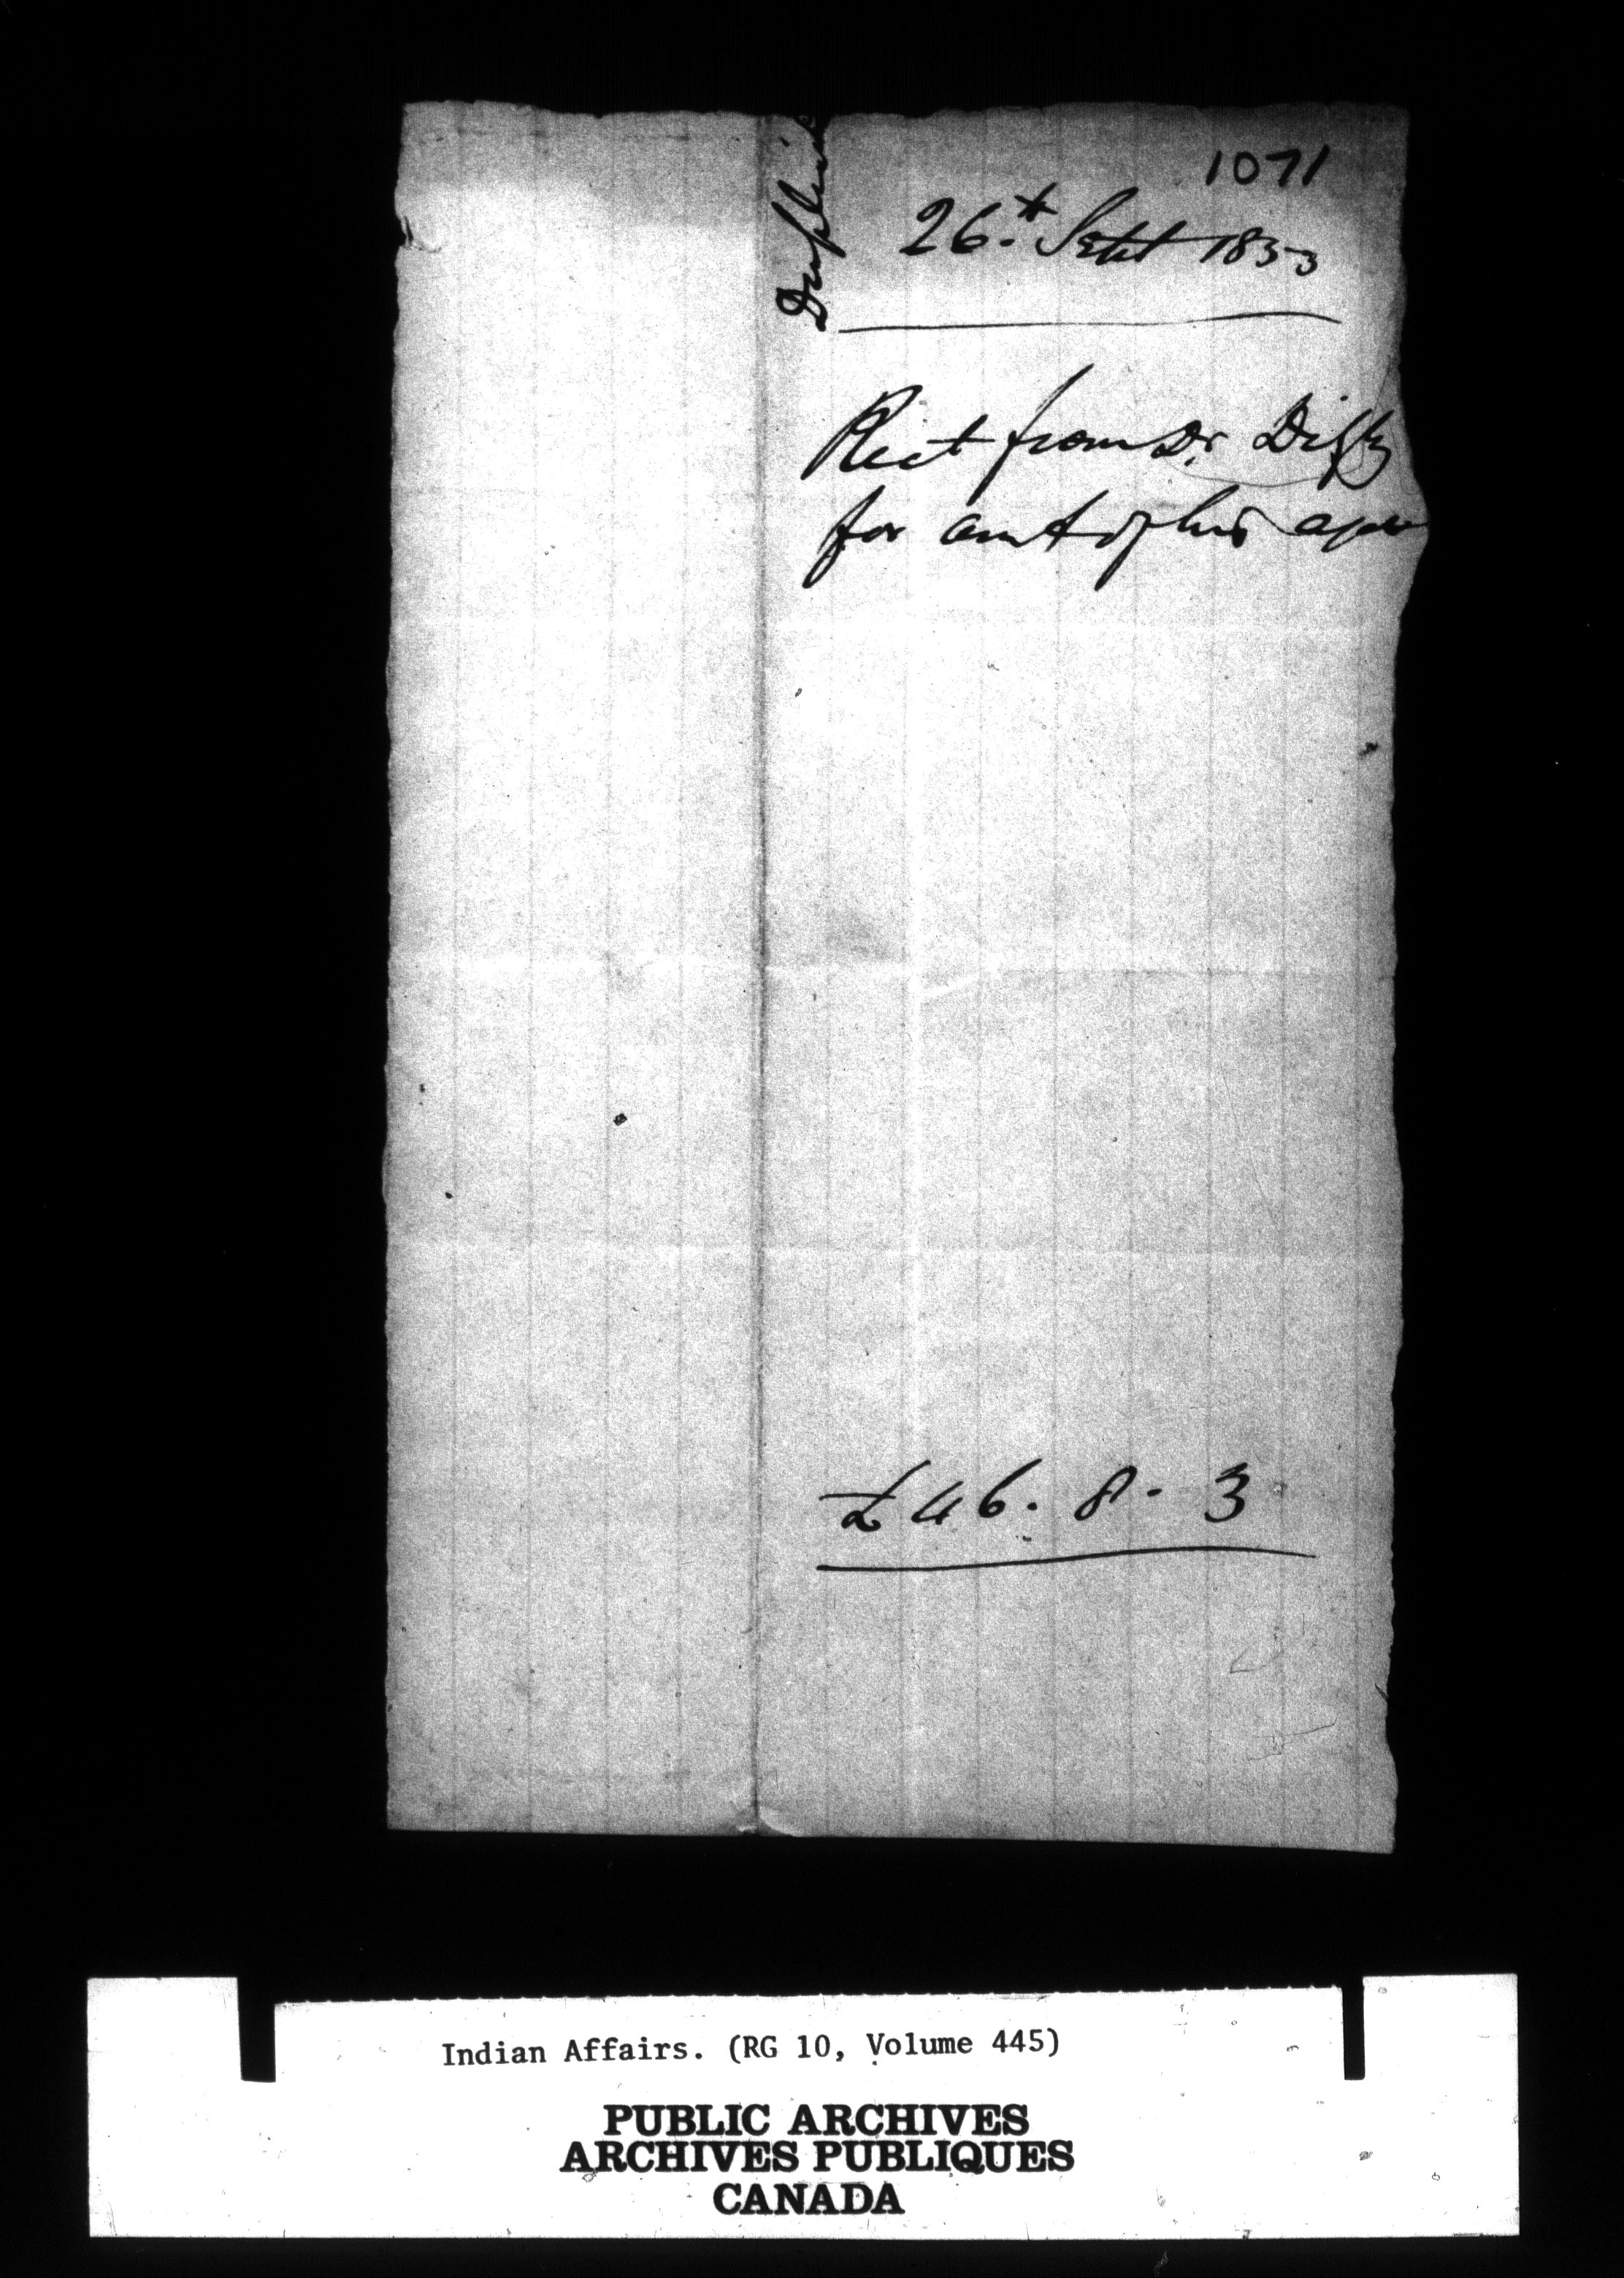 1071
26.t Sept 1833
Rect from Dr. Digby
for amt of his
£46. 8. 3
Indian Affairs. (RG 10, Volume 445)
PUBLIC ARCHIVES
ARCHIVES PUBLIQUES
CANADA